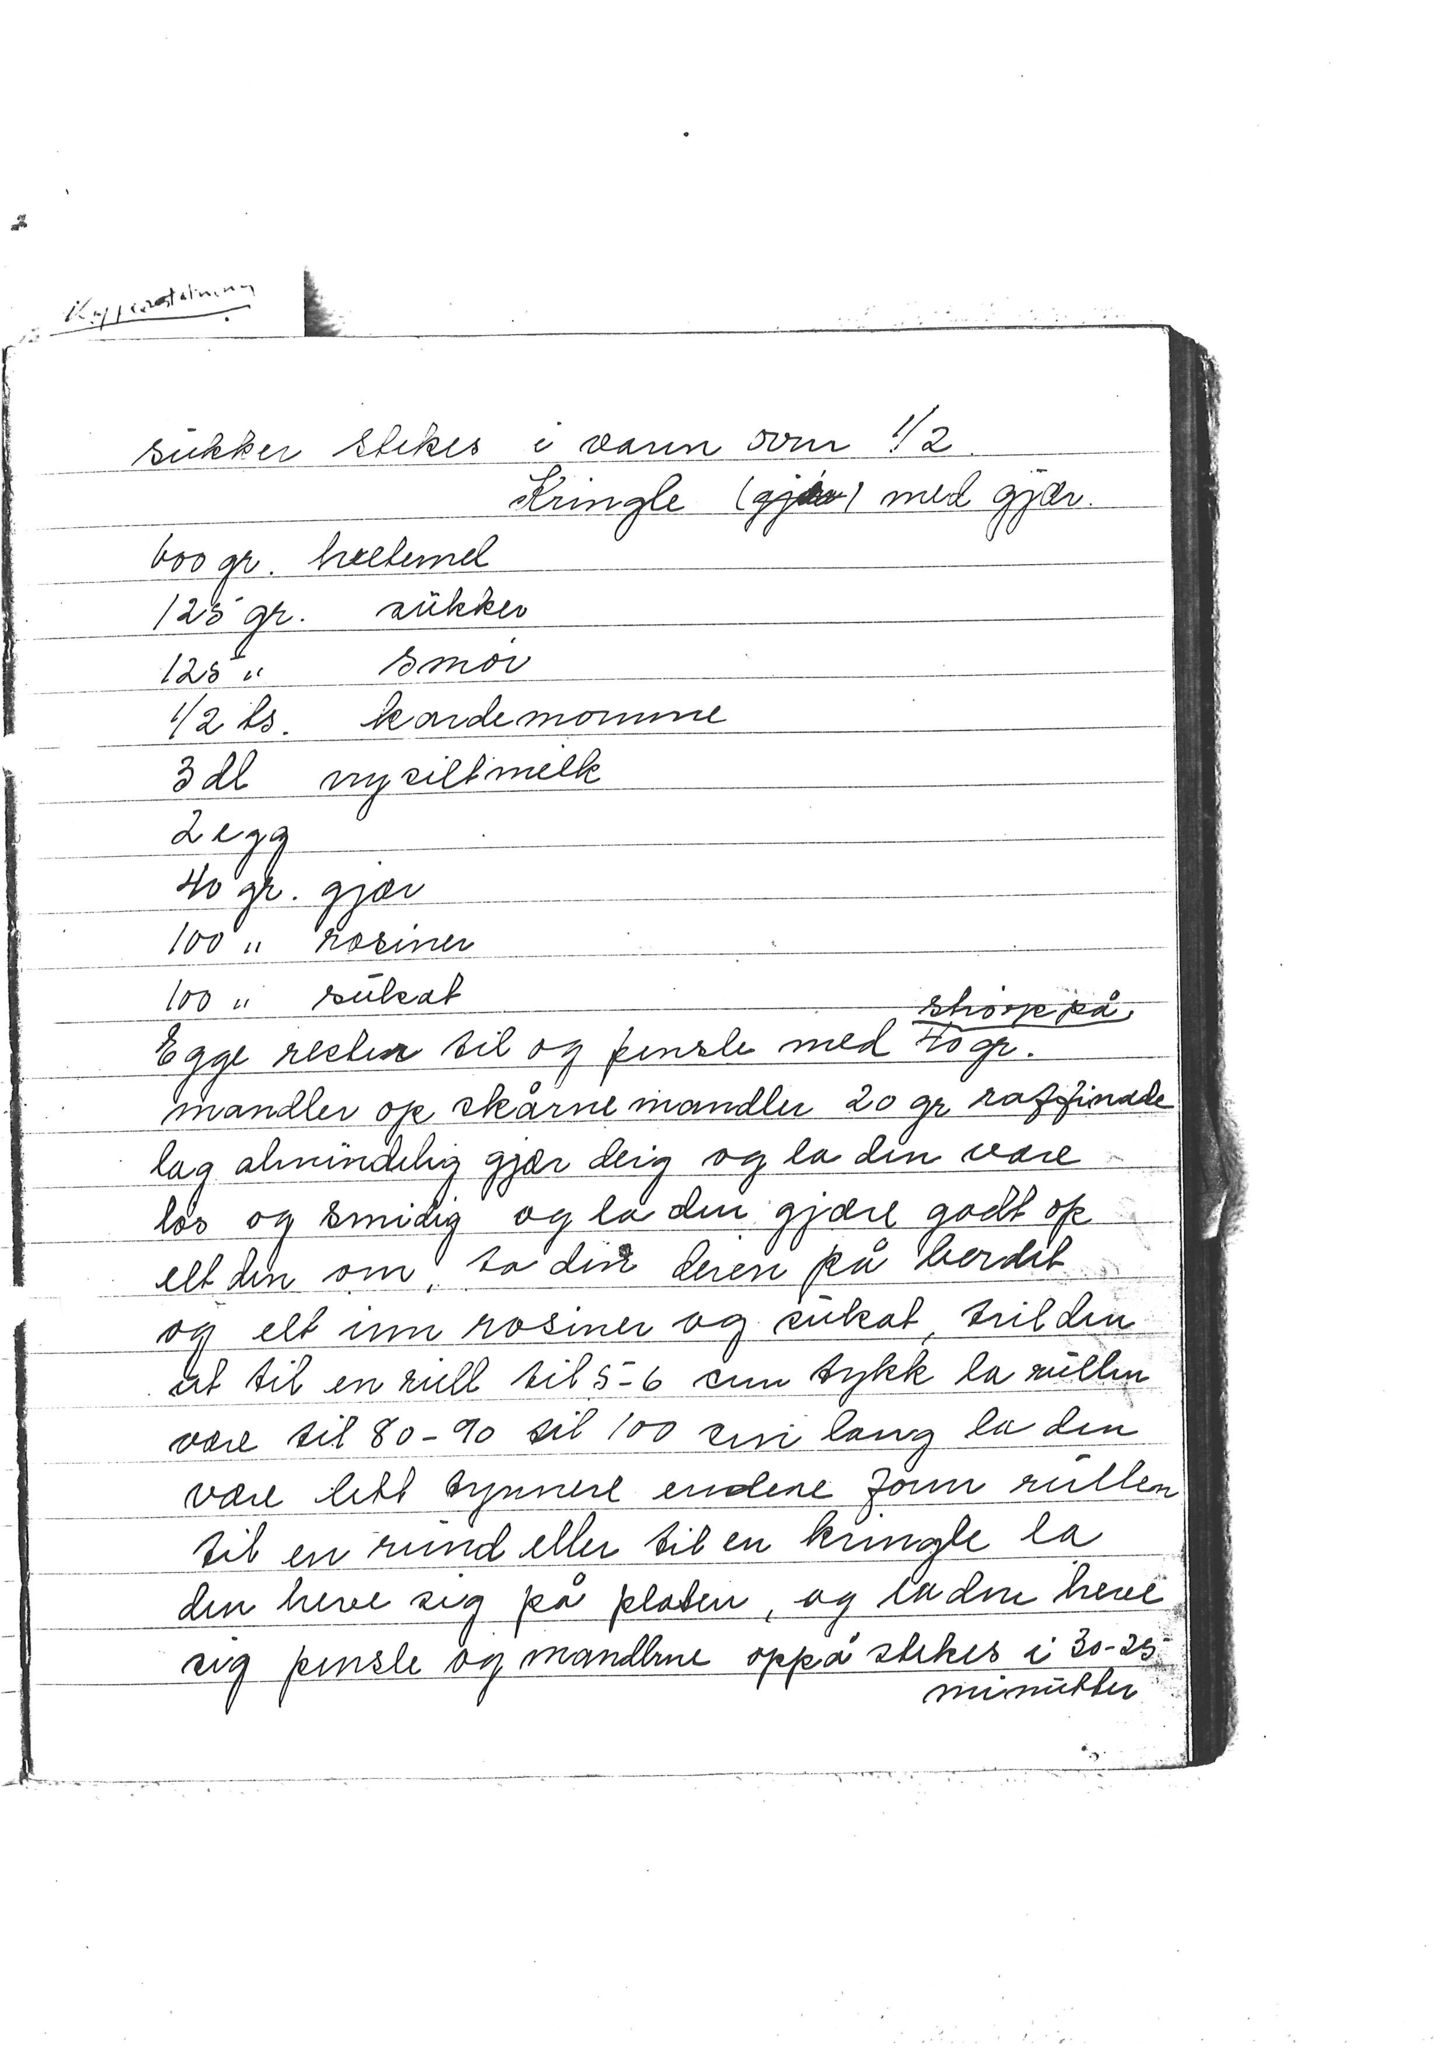 sukker stekes i varm ovn 1/2.
Kringle (gjær) med gjær.
600 gr. hvetemel
125 gr. sukker
125 " smør
1/2 ts. kardemomme
3 dl nysiltmelk
2 egg
40 gr. gjær
100 " rosiner
100 " sukat
strøpå.
Egge resten til og pensle med 40 gr.
mandler op skårne mandler 20 gr raffinade
lag almindelig gjær deig og la den være
løs og smidig og la den gjære godt op
elt den om, ta den deien på bordet
og elt inn rosiner og sukat, tril den
ut til en rull til 5-6 cm tykk la rullen
være til 80-90 til 100 cm lang la den
være litt tynnere endene form rullen
til en rund eller til en kringle la
den heve sig på platen, og la den heve
sig pensle og mandlene oppå stekes i 30-25
minutter